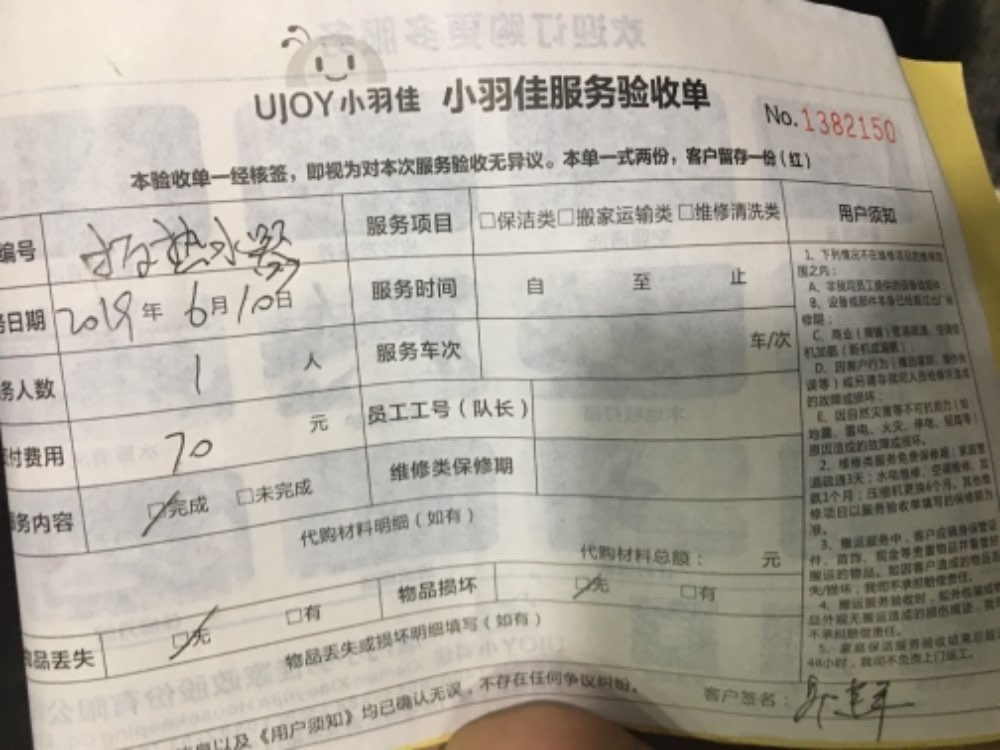 UJOY小羽佳 小羽佳服务验收单
No.1382150
本验收单一经核签，即视为对本次服务验收无异议。本单一式两份，客户留存一份(红)
编号 热水器 服务项目 □保洁类□搬家运输类□维修清洗类 用户须知
务日期 2019年 6月10日 服务时间 自 至 止
务人数 1 人 服务车次 车/次
付费用 70 元 员工工号（队长）
务内容 □完成 □未完成 维修类保修期
代购材料明细（如有）
代购材料总额： 元
品丢失 □无 □有 物品损坏 □无 □有
物品丢失或损坏明细填写（如有）
信息以及《用户须知》均已确认无误，不存在任何争议纠纷。
客户签名：
1、下列情况不在维修项目的维保范
围之内：
A、非我司员工提供的设备或部件；
B、设备或部件本身已经超过出厂保
修期；
D、因客户行为
误等）或另请非我司人员检修所造成
的故障或损坏；
E、因自然灾害等不可抗因力（如
地震、雷电、火灾、停电、短路等）
原因造成的故障或损坏。
2、维修类服务免费保修期：家庭管
道疏通3天；水电维修、空调维修、加
氨1个月；压缩机更换6个月，其他维
修项目以服务验收单填写的保修期为
准。
3、搬运服务中，客户应随身保管证
件、首饰、现金等贵重物品并看管好
搬运的物品。如因客户造成的物品丢
失/损坏，我司不承担赔偿责任。
4、搬运服务验收时，如外包装或物
品外观无搬运造成的损伤痕迹，我司
不承担赔偿责任。
5、家庭保洁服务验收结束后超过
48小时，我司不负责上门返工。